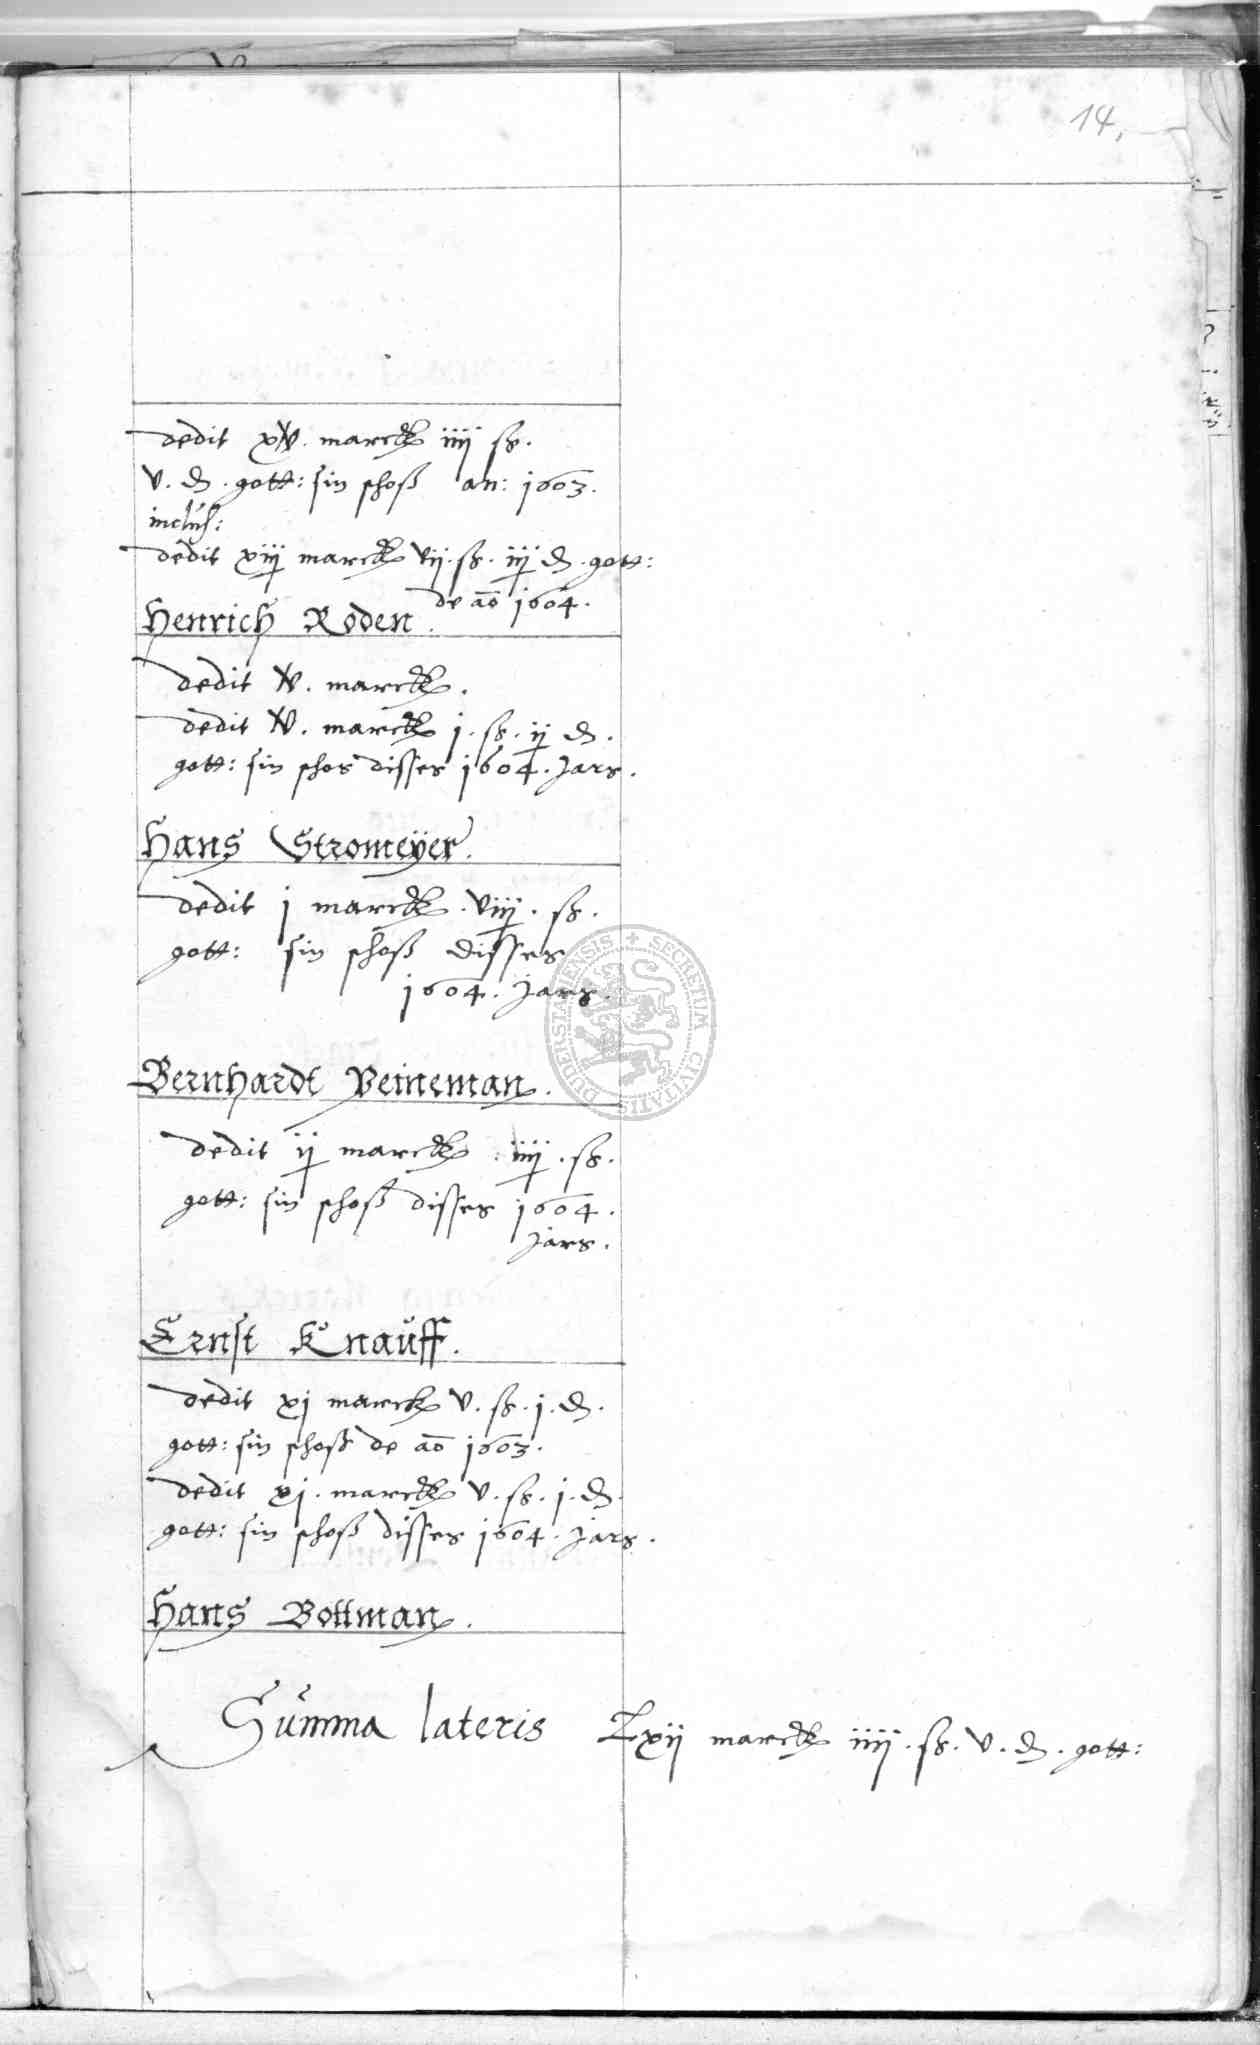 14.
dedit xv. marck iiij ß.
v. d. gott: sin schoß an: 1603.
inclus:
dedit xiij marck vij. ß. iij d. gott:
de ao 1604.
Henrich Roden.
dedit v. marck.
dedit v. marck j. ß. ij d.
gott: sin schos disses 1604. Jars.
Hans Stromeÿer.
dedit j marck. viij. ß.
gott: sin schoß disses
1604. Jars.
Bernhardt Peineman.
dedit ij marck. iiij. ß.
gott: sin schoß disses 1604.
Jars.
Ernst Knauff.
dedit xj marck v. ß. j. d.
gott: sin schoß de ao 1603.
dedit xj. marck v. ß. j. d.
gott: sin schoß disses 1604. Jars.
Hans Bottman.
Summa lateris Lxij marck iiij. ß. v. d. gott:
SECRETUM CIVITATIS DUDERSTADIENSIS